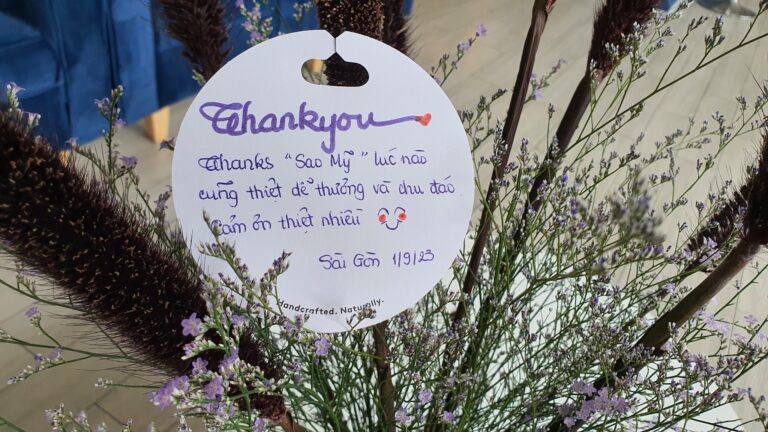 Thankyou
Thanks "Sao Mỹ" lúc nào
cũng thiệt dễ thương và chu đáo
Cảm ơn thiệt nhiều
Sài Gòn 1/9/23
Handcrafted. Naturally.